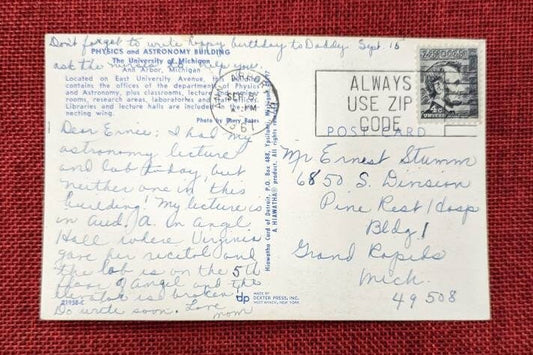 Don't forget to write happy birthday to Daddy Sept 15
ask the nurses to help you.
PHYSICS and ASTRONOMY BUILDING
The University of Michigan
Ann Arbor, Michigan
Located on East University Avenue, this building
contains the offices of the department of Physics
and Astronomy, plus classrooms, lecture
rooms, research areas, laboratories and
Libraries and lecture halls are included in the
necting wing.
Photo by Mary Bates
Dear Ernie: I had my
astronomy lecture
and lab today, but
neither one in this
building! My lecture is
in Aud. A. in Angel
Hall where Virginia
gave her recital and
the lab is on the 5th
floor of Angel and the
is broken!
Do write soon. Love
mom
21938-C
dp
MADE BY
DEXTER PRESS, INC.
WEST NYACK, NEW YORK
Hiawatha Card of Detroit, P.O. Box 488, Ypsilanti, Michigan
A HIAWATHA product. All rights reserved
ANN ARBOR
SEP
PM
ALWAYS
USE ZIP
CODE
POST CARD
Mr Ernest Stumm
6850 S. Division
Pine Rest Hosp
Bldg 1
Grand Rapids
Mich.
49508